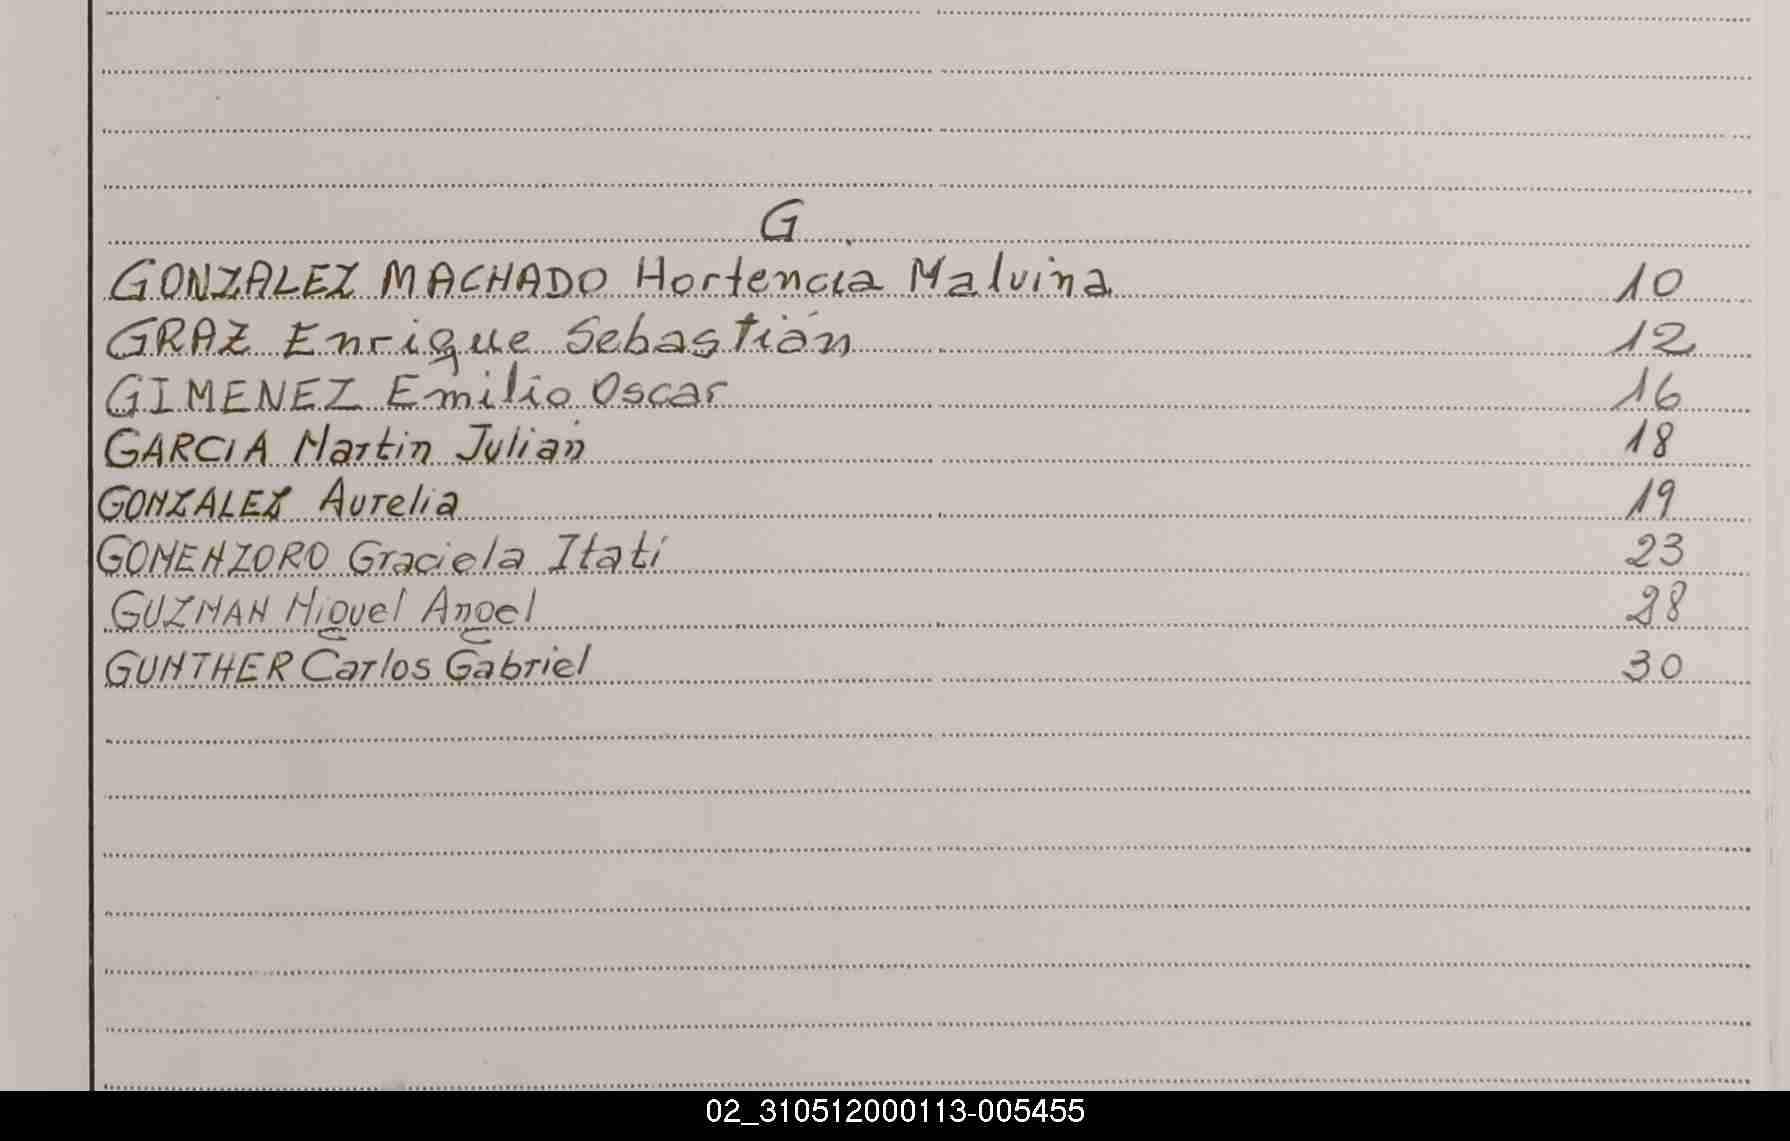 G
GONZALEZ MACHADO Hortencia Malvina 10
GRAZ Enrique Sebastián 12
GIMENEZ Emilio Oscar 16
GARCIA Martin Julián 18
GONZALEZ Aurelia 19
GOMENZORO Graciela Itatí 23
GUZMAN Miguel Angel 28
GUNTHER Carlos Gabriel 30
02_310512000113-005455